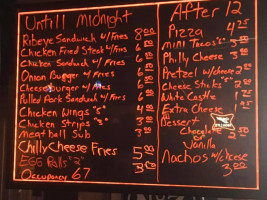 Untill Midnight
Ribeye Sandwich w/Fries 8.00
Chicken Fried Steak w/Fries
Chicken Sandwich w/Fries
Onion Burger w/Fries
Cheeseburger w/Fries
Pulled Pork Sandwich w/Fries
Chicken Wings "5"
Chicken Strips "3"
Meatball Sub
Chilly Cheese Fries 5.00
EGG Rolls "2"
Occupancy 67
After 12
Pizza 4.25
Mini Tacos
Philly Cheese
Pretzel w/cheese
Cheese Sticks
White Castle
Extra Cheese
Dessert
Chocolate
or
Vanilla
Nachos w/cheese
3.00